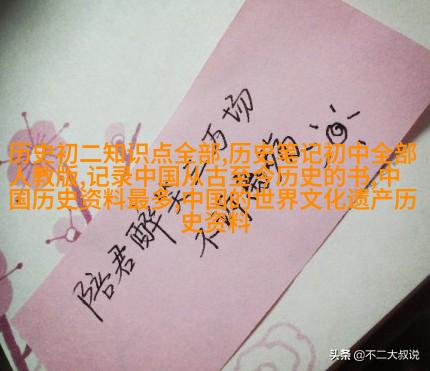 历史初二知识点全部,历史笔记初中全部
人教版,记录中国从古至今历史的书,中
国历史资料最多,中国的世界文化遗产历
史资料
陪君醉笑三万场
不诉离殇
头条 @不二大叔说